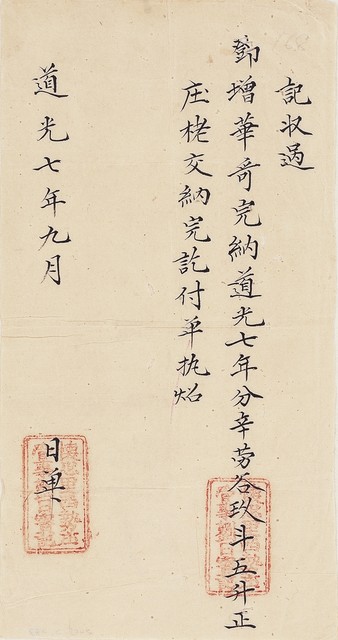 記収過
鄧增華哥完納道光七年分辛劳谷玖斗五升正
庄栳交納完訖付单执炤
道光七年九月
日单